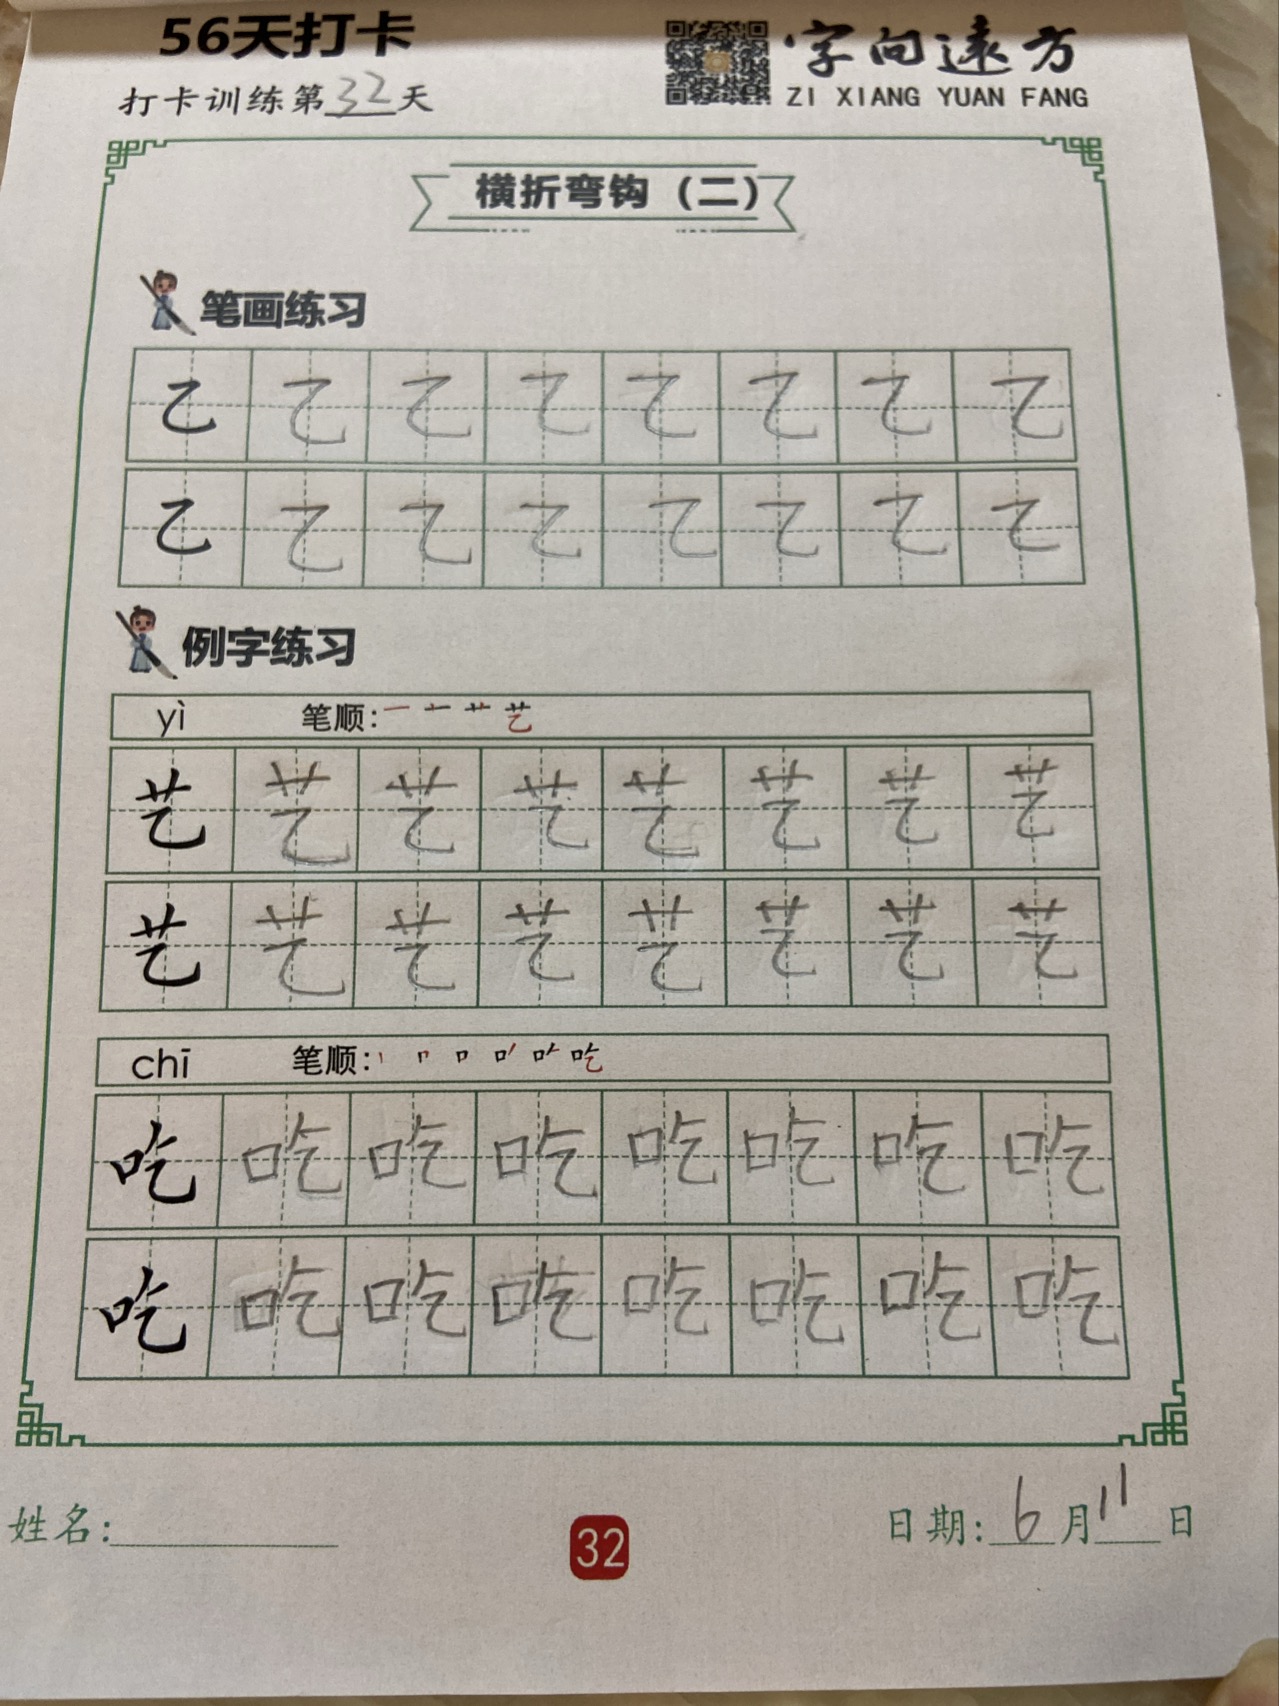 56天打卡
字向远方
打卡训练第32天
ZI XIANG YUAN FANG
横折弯钩（二）
笔画练习
乙 乙 乙 乙 乙 乙 乙 乙
乙 乙 乙 乙 乙 乙 乙 乙
例字练习
yì 笔顺: 一 十 艹 艺
艺 艺 艺 艺 艺 艺 艺 艺
艺 艺 艺 艺 艺 艺 艺 艺
chī 笔顺: 丨 𠃍 口 吃
吃 吃 吃 吃 吃 吃 吃 吃
吃 吃 吃 吃 吃 吃 吃 吃
姓名:
32
日期: 6月11日